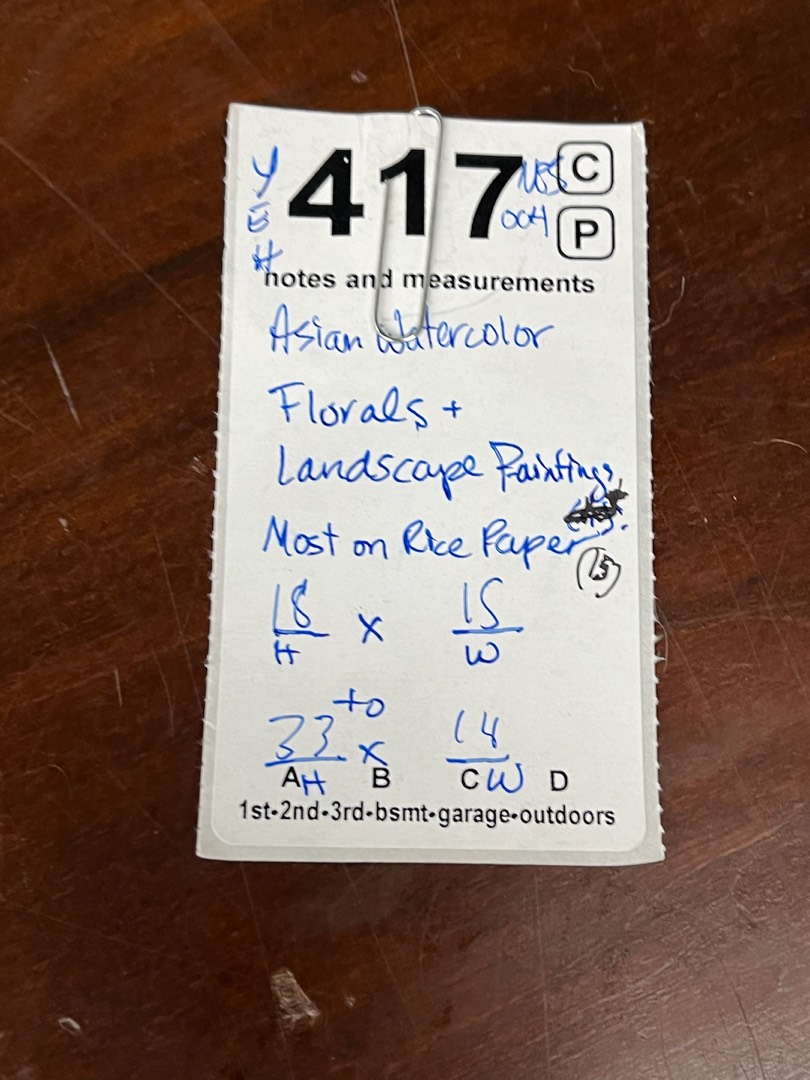 Y 417 C
E 004 P
H
notes and measurements
Asian Watercolor
Florals +
Landscape Paintings
Most on Rice Paper
(15)
18 x 15
H W
to
33 x 14
H W
A B C D
1st•2nd•3rd•bsmt•garage•outdoors